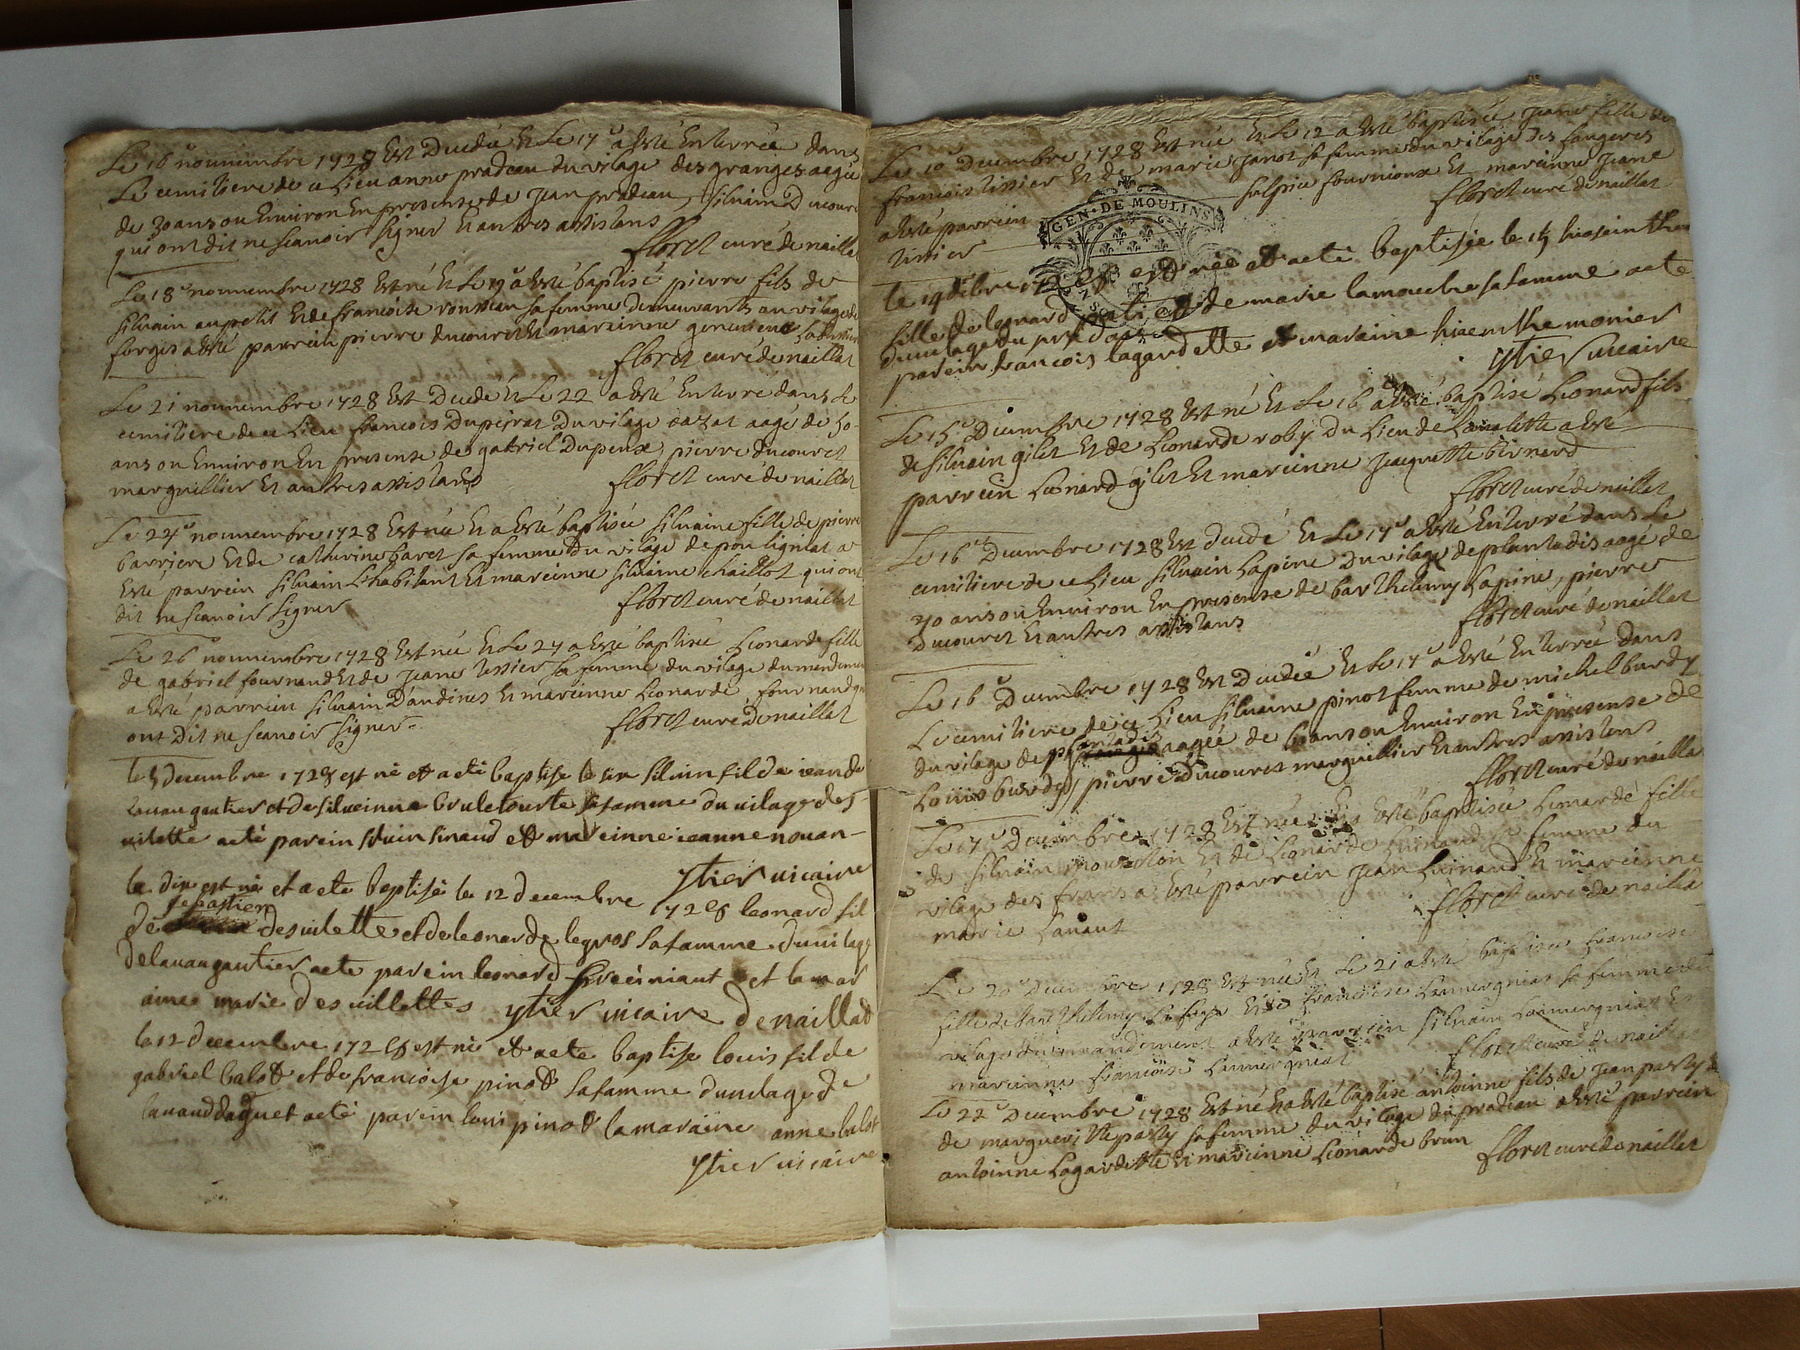 Le 16e nouuembre 1728 Est Decedée Et Le 17e a Esté Enterrée dans
Le cemitiere de ce Lieu anne pradeau du vilage des granges aagée
de 30 ans ou Environ En presense de Jean pradeau, siluain Ducouret
qui ont dit ne scauoir signer Et autres assistans
floret curé de naillat
Le 18e nouuembre 1728 Est né Et Le 19e a Esté baptisé pierre fils de
siluain aupetit Et de francoise rousseau sa femme Demeurants au vilage de
forges a Esté parrein pierre ducouret Et mareinne
floret curé de naillat
Le 21 nouuembre 1728 Est Decedé Et Le 22 a Esté Enterré dans Le
cemitiere de ce Lieu francois Dupeyrat Du vilage aagé de 50
ans ou Environ En presense de gabriel Dupeux, pierre ducouret
marguillier Et autres assistans
floret curé de naillat
Le 24e nouuembre 1728 Est née Et a Esté baptisée siluaine fille de pierre
barriere Et de catherine baret sa femme Du vilage de poulignat a
Esté parrein siluain Lhabitant Et mareinne siluaine chaillot qui ont
dit ne scauoir signer
floret curé de naillat
Le 26e nouuembre 1728 Est née Et Le 27 a Esté baptisée Leonarde fille
de gabriel fournaud Et de Jeane tissier sa femme du vilage du mandement
a Esté parrein siluain Dandines Et mareinne Leonarde fournaud qui
ont Dit ne scauoir signer
floret curé De naillat
le 5 decembre 1728 est né et a eté baptise le six siluin fil de iean de
lauaugautier et de silueinne bruletourte sa famme du uilage des
uilette a eté parein siluin sinaud et mareinne ieanne nouan
ytier uicaire
le dix est né et a eté baptisé le 12 decembre 1728 leonard fil
de sebastien desuilette et de leonarde legros sa famme du uilage
de lauaugautier a eté parein leonard et la mar
aine marie desuillettes ytier uicaire de naillat
le 12 decembre 1728 est né et a eté baptise louis fil de
gabriel balot et de francoise pinot sa famme du uilage de
lauauddaguet a eté parein louis pinot la maraine anne balot
ytier uicaire
Le 10e Decembre 1728 Est née Et Le 12 a Esté baptisée Jeane fille de
francois tissier Et de marie Janot sa femme du vilage des fougeres
a Esté parrein sulpice fournioux Et mareinne Jeane
tissier
floret curé de naillat
GEN · DE MOULINS
le 14 dbre 1728 est née et a eté baptisée le 15 hiasainthe
fille de leonard et de marie lamouche sa famme a eté
du uilage du
parein francois lagardette et maraine hiacinthe monier
ytier uicaire
Le 15e Decembre 1728 Est né Et Le 16 a Esté baptisé Leonard fils
de siluain gilet Et de Leonarde roby Du Lieu de Laualette a Esté
parrein Leonard gilet Et mareinne Jacquette bernard
floret curé de naillat
Le 16e Decembre 1728 Est decedé Et Le 17e a Esté Enterré dans Le
cemitiere de ce Lieu siluain Lapine Du vilage de plantadis aagé de
70 ans ou Environ En presense de barthelemy Lapine, pierre
Ducouret Et autres assistans
floret curé de naillat
Le 16e Decembre 1728 Est Decedée Et Le 17e a Esté Enterrée dans
Le cemitiere de ce Lieu siluaine pinot femme de michel burdy
du vilage de plantadis aagée de 60 ans ou Environ En presense de
Louis burdy, pierre ducouret marguillier Et autres assistans
floret curé de naillat
Le 17e Decembre 1728 Est née Et a Esté baptisée Leonarde fille
de siluain Et de Leonarde Luinaud sa femme du
vilage des a Esté parrein Jean Luinaud Et mareinne
marie Lanaut
floret curé de naillat
Le 20e Decembre 1728 Est née Et Le 21 a Esté baptisée francoise
fille de barthelemy Et de francoise Lamergnias sa femme du
vilage du mandement a Esté parrein siluain Lamergnias Et
mareinne francoise
floret curé de naillat
Le 22e Decembre 1728 Est né Et a Esté baptisé antoinne fils de Jean pasty Et
de margueritte pasty sa femme du vilage du pradeau a Esté parrein
antoinne Lagardette Et mareinne Leonarde brun
floret curé de naillat